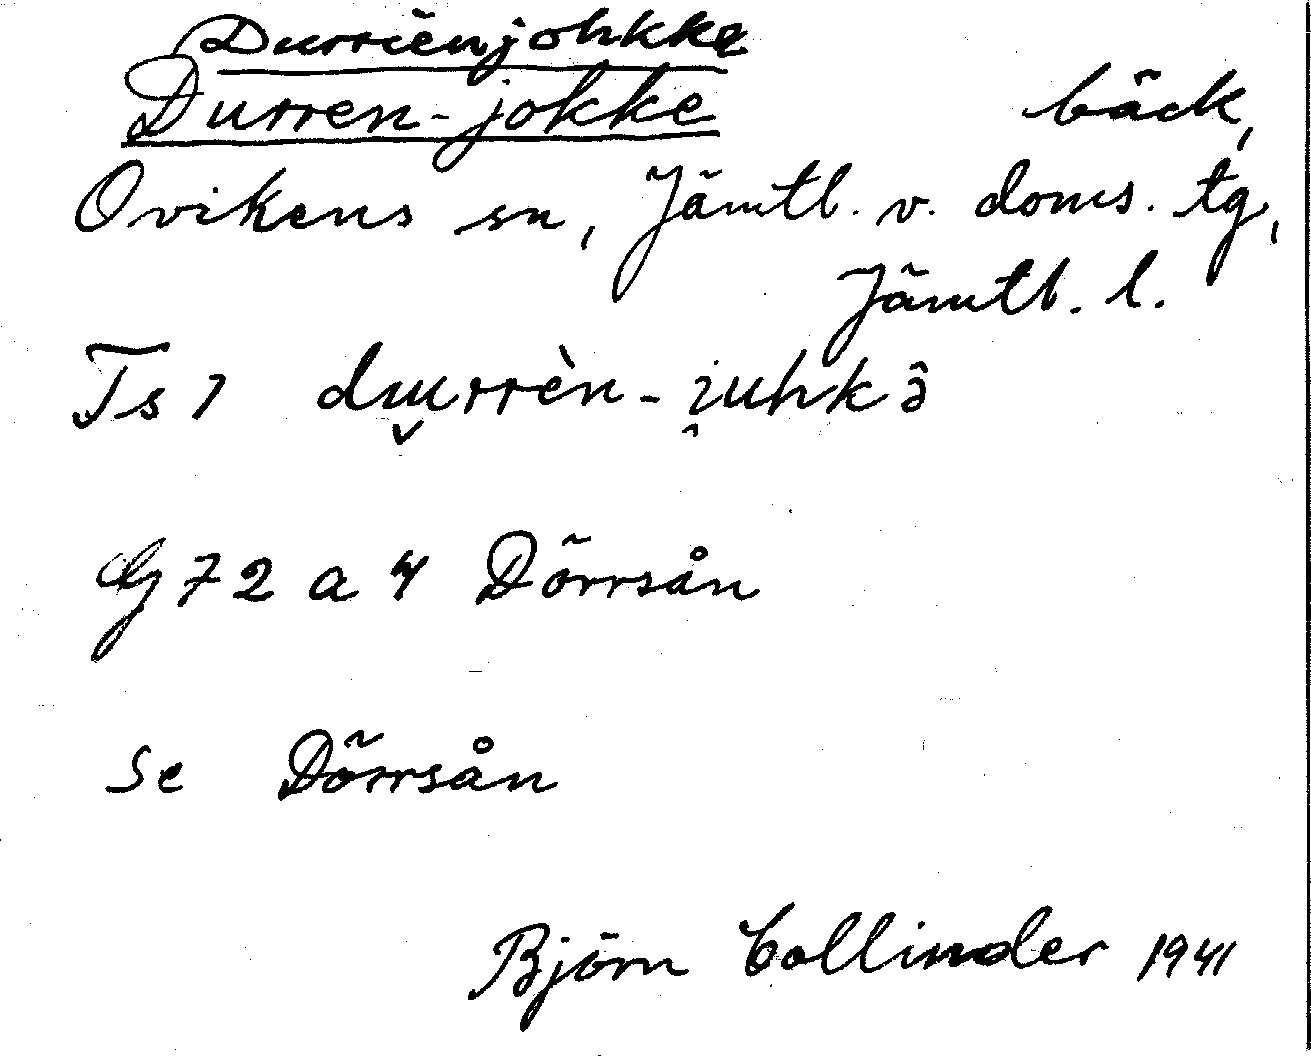 Durriënjohkke
Durren-jokke bäck,
Ovikens sn, Jämtl. v. doms. tg,
Jämtl. l.
Ts 1 du̬rrèn-i̭uhkə̂
G 72 a 4 Dörrsån
se Dörrsån
Björn Collinder 1941